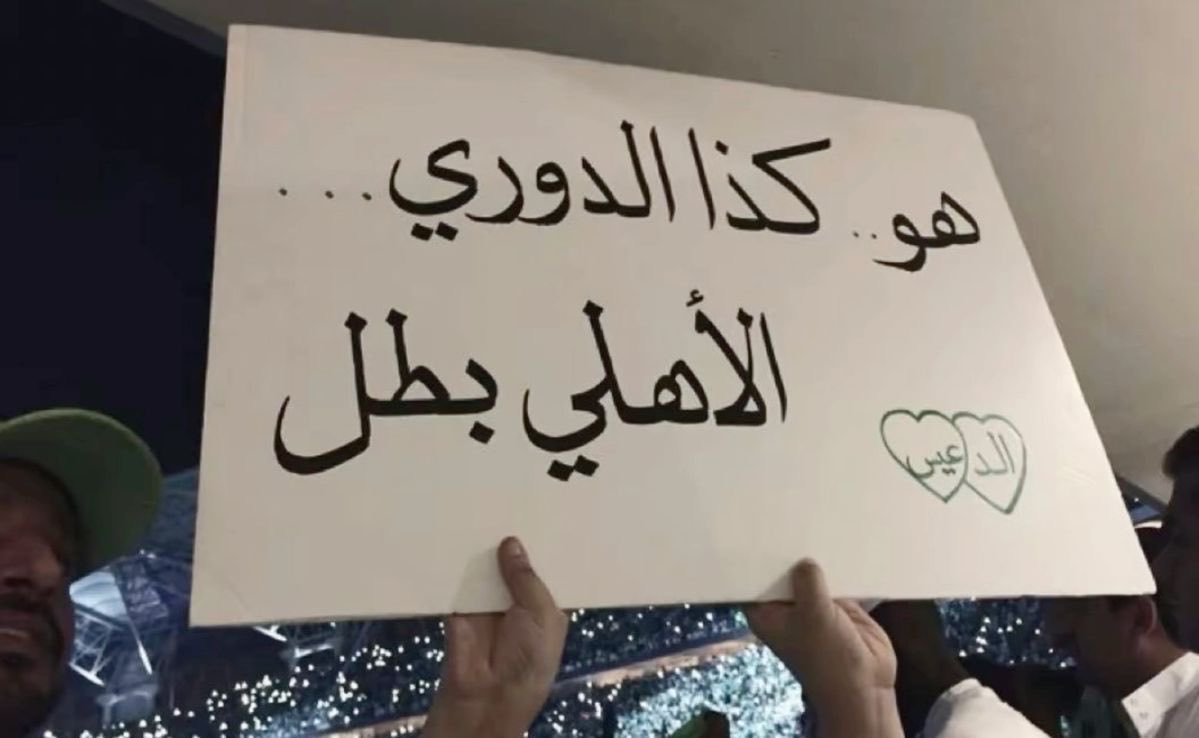 هو.. كذا الدوري...
الأهلي بطل
الدعيس